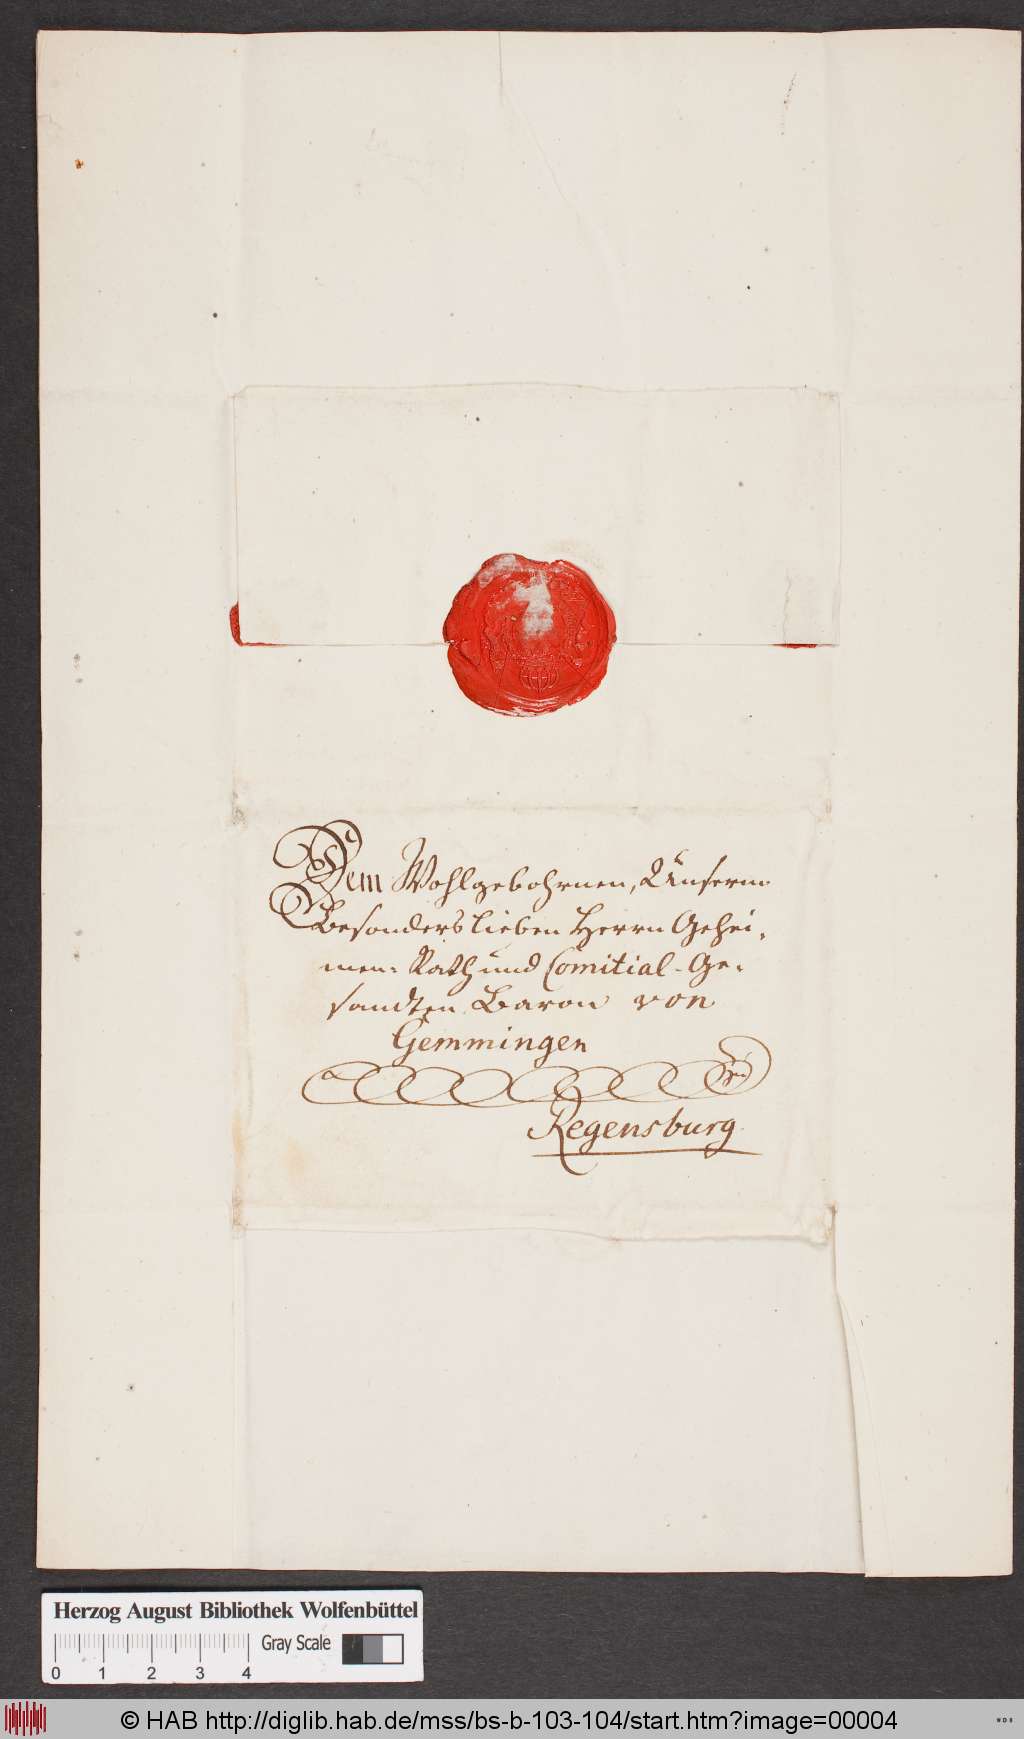 Dem Wohlgebohrnen, Unserm
Besonders lieben Herrn Gehei-
men-Rath und Comitial-Ge-
sandten Baron von
Gemmingen
Regensburg
Herzog August Bibliothek Wolfenbüttel
Gray Scale
0 1 2 3 4
© HAB http://diglib.hab.de/mss/bs-b-103-104/start.htm?image=00004